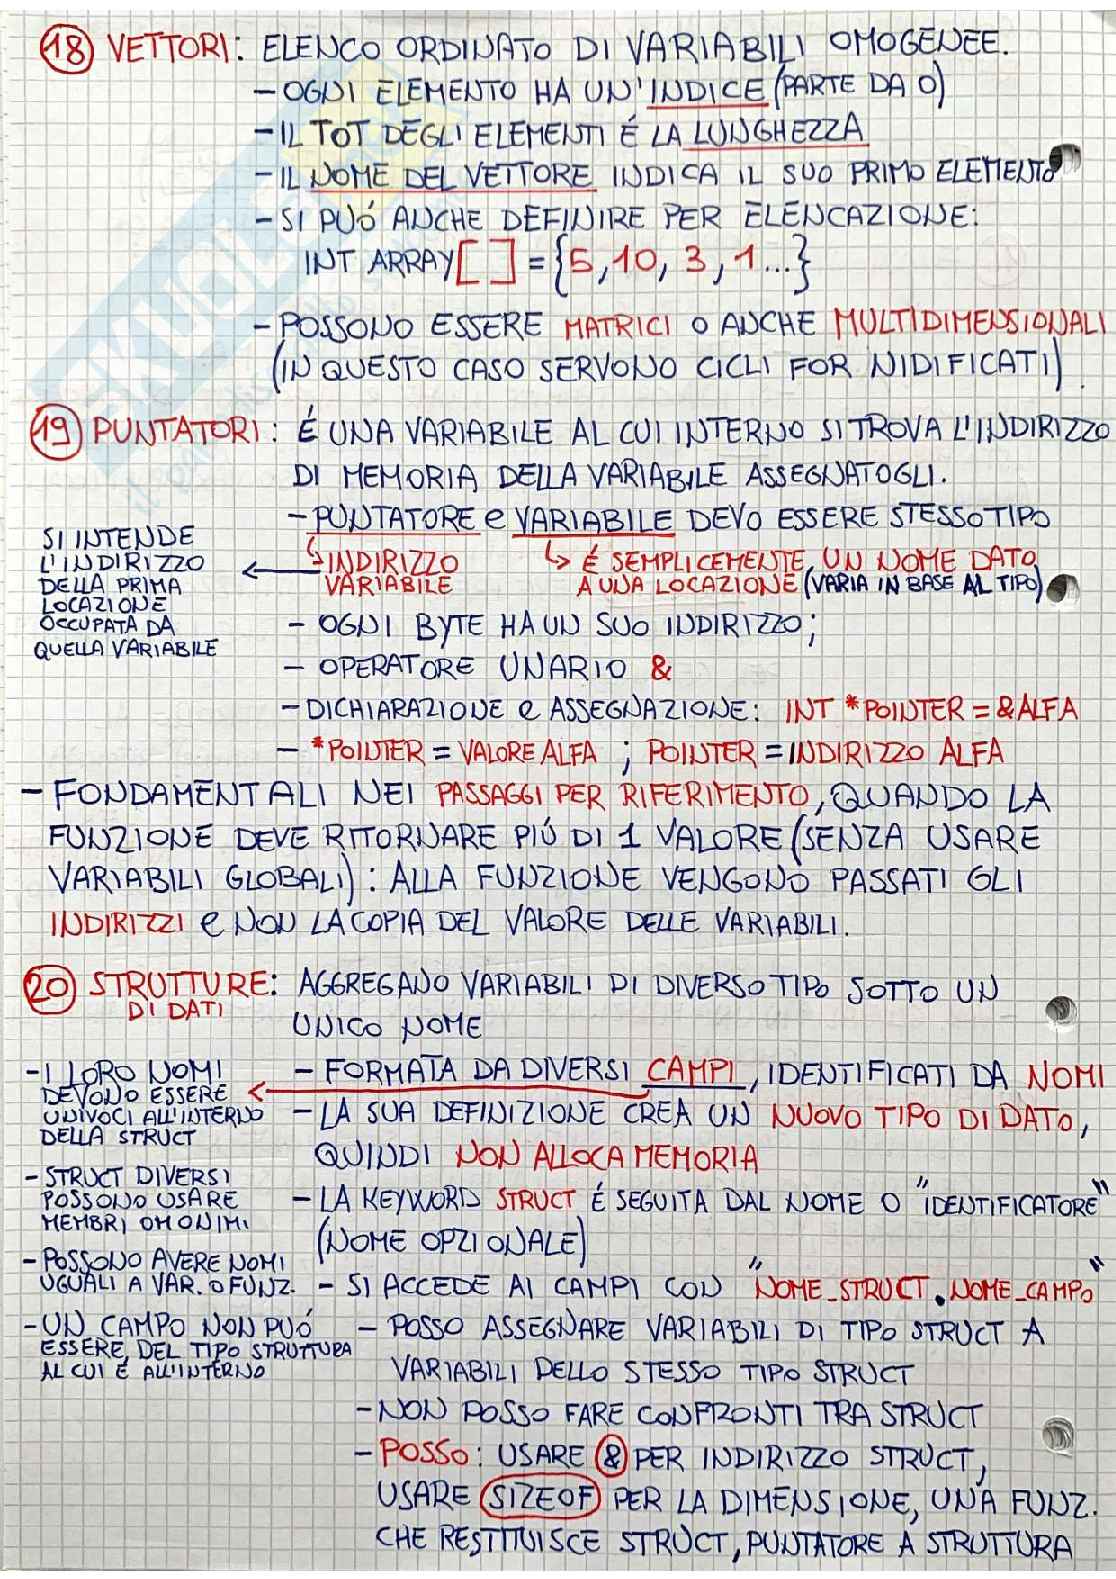 18 VETTORI: ELENCO ORDINATO DI VARIABILI OMOGENEE.
- OGNI ELEMENTO HA UN'INDICE (PARTE DA 0)
- IL TOT DEGLI ELEMENTI É LA LUNGHEZZA
- IL NOME DEL VETTORE INDICA IL SUO PRIMO ELEMENTO
- SI PUÓ ANCHE DEFINIRE PER ELENCAZIONE:
INT ARRAY[ ] = {5, 10, 3, 1...}
- POSSONO ESSERE MATRICI O ANCHE MULTIDIMENSIONALI
(IN QUESTO CASO SERVONO CICLI FOR NIDIFICATI).
19 PUNTATORI: É UNA VARIABILE AL CUI INTERNO SI TROVA L'INDIRIZZO
DI MEMORIA DELLA VARIABILE ASSEGNATOGLI.
- PUNTATORE e VARIABILE DEVO ESSERE STESSO TIPO
↳ INDIRIZZO VARIABILE
↳ É SEMPLICEMENTE UN NOME DATO
A UNA LOCAZIONE (VARIA IN BASE AL TIPO)
SI INTENDE
L'INDIRIZZO
DELLA PRIMA
LOCAZIONE
OCCUPATA DA
QUELLA VARIABILE
- OGNI BYTE HA UN SUO INDIRIZZO;
- OPERATORE UNARIO &
- DICHIARAZIONE e ASSEGNAZIONE: INT *POINTER = &ALFA
- *POINTER = VALORE ALFA ; POINTER = INDIRIZZO ALFA
- FONDAMENTALI NEI PASSAGGI PER RIFERIMENTO, QUANDO LA
FUNZIONE DEVE RITORNARE PIÚ DI 1 VALORE (SENZA USARE
VARIABILI GLOBALI): ALLA FUNZIONE VENGONO PASSATI GLI
INDIRIZZI e NON LA COPIA DEL VALORE DELLE VARIABILI.
20 STRUTTURE: AGGREGANO VARIABILI DI DIVERSO TIPO SOTTO UN
DI DATI
UNICO NOME
- FORMATA DA DIVERSI CAMPI, IDENTIFICATI DA NOMI
- I LORO NOMI
DEVONO ESSERE
UNIVOCI ALL'INTERNO
DELLA STRUCT
- LA SUA DEFINIZIONE CREA UN NUOVO TIPO DI DATO,
QUINDI NON ALLOCA MEMORIA
- STRUCT DIVERSI
POSSONO USARE
MEMBRI OMONIMI
- LA KEYWORD STRUCT É SEGUITA DAL NOME O "IDENTIFICATORE"
(NOME OPZIONALE)
- POSSONO AVERE NOMI
UGUALI A VAR. O FUNZ.
- SI ACCEDE AI CAMPI CON "NOME_STRUCT.NOME_CAMPO"
- UN CAMPO NON PUÓ
ESSERE DEL TIPO STRUTTURA
AL CUI É ALL'INTERNO
- POSSO ASSEGNARE VARIABILI DI TIPO STRUCT A
VARIABILI DELLO STESSO TIPO STRUCT
- NON POSSO FARE CONFRONTI TRA STRUCT
- POSSO: USARE & PER INDIRIZZO STRUCT,
USARE SIZEOF PER LA DIMENSIONE, UNA FUNZ.
CHE RESTITUISCE STRUCT, PUNTATORE A STRUTTURA